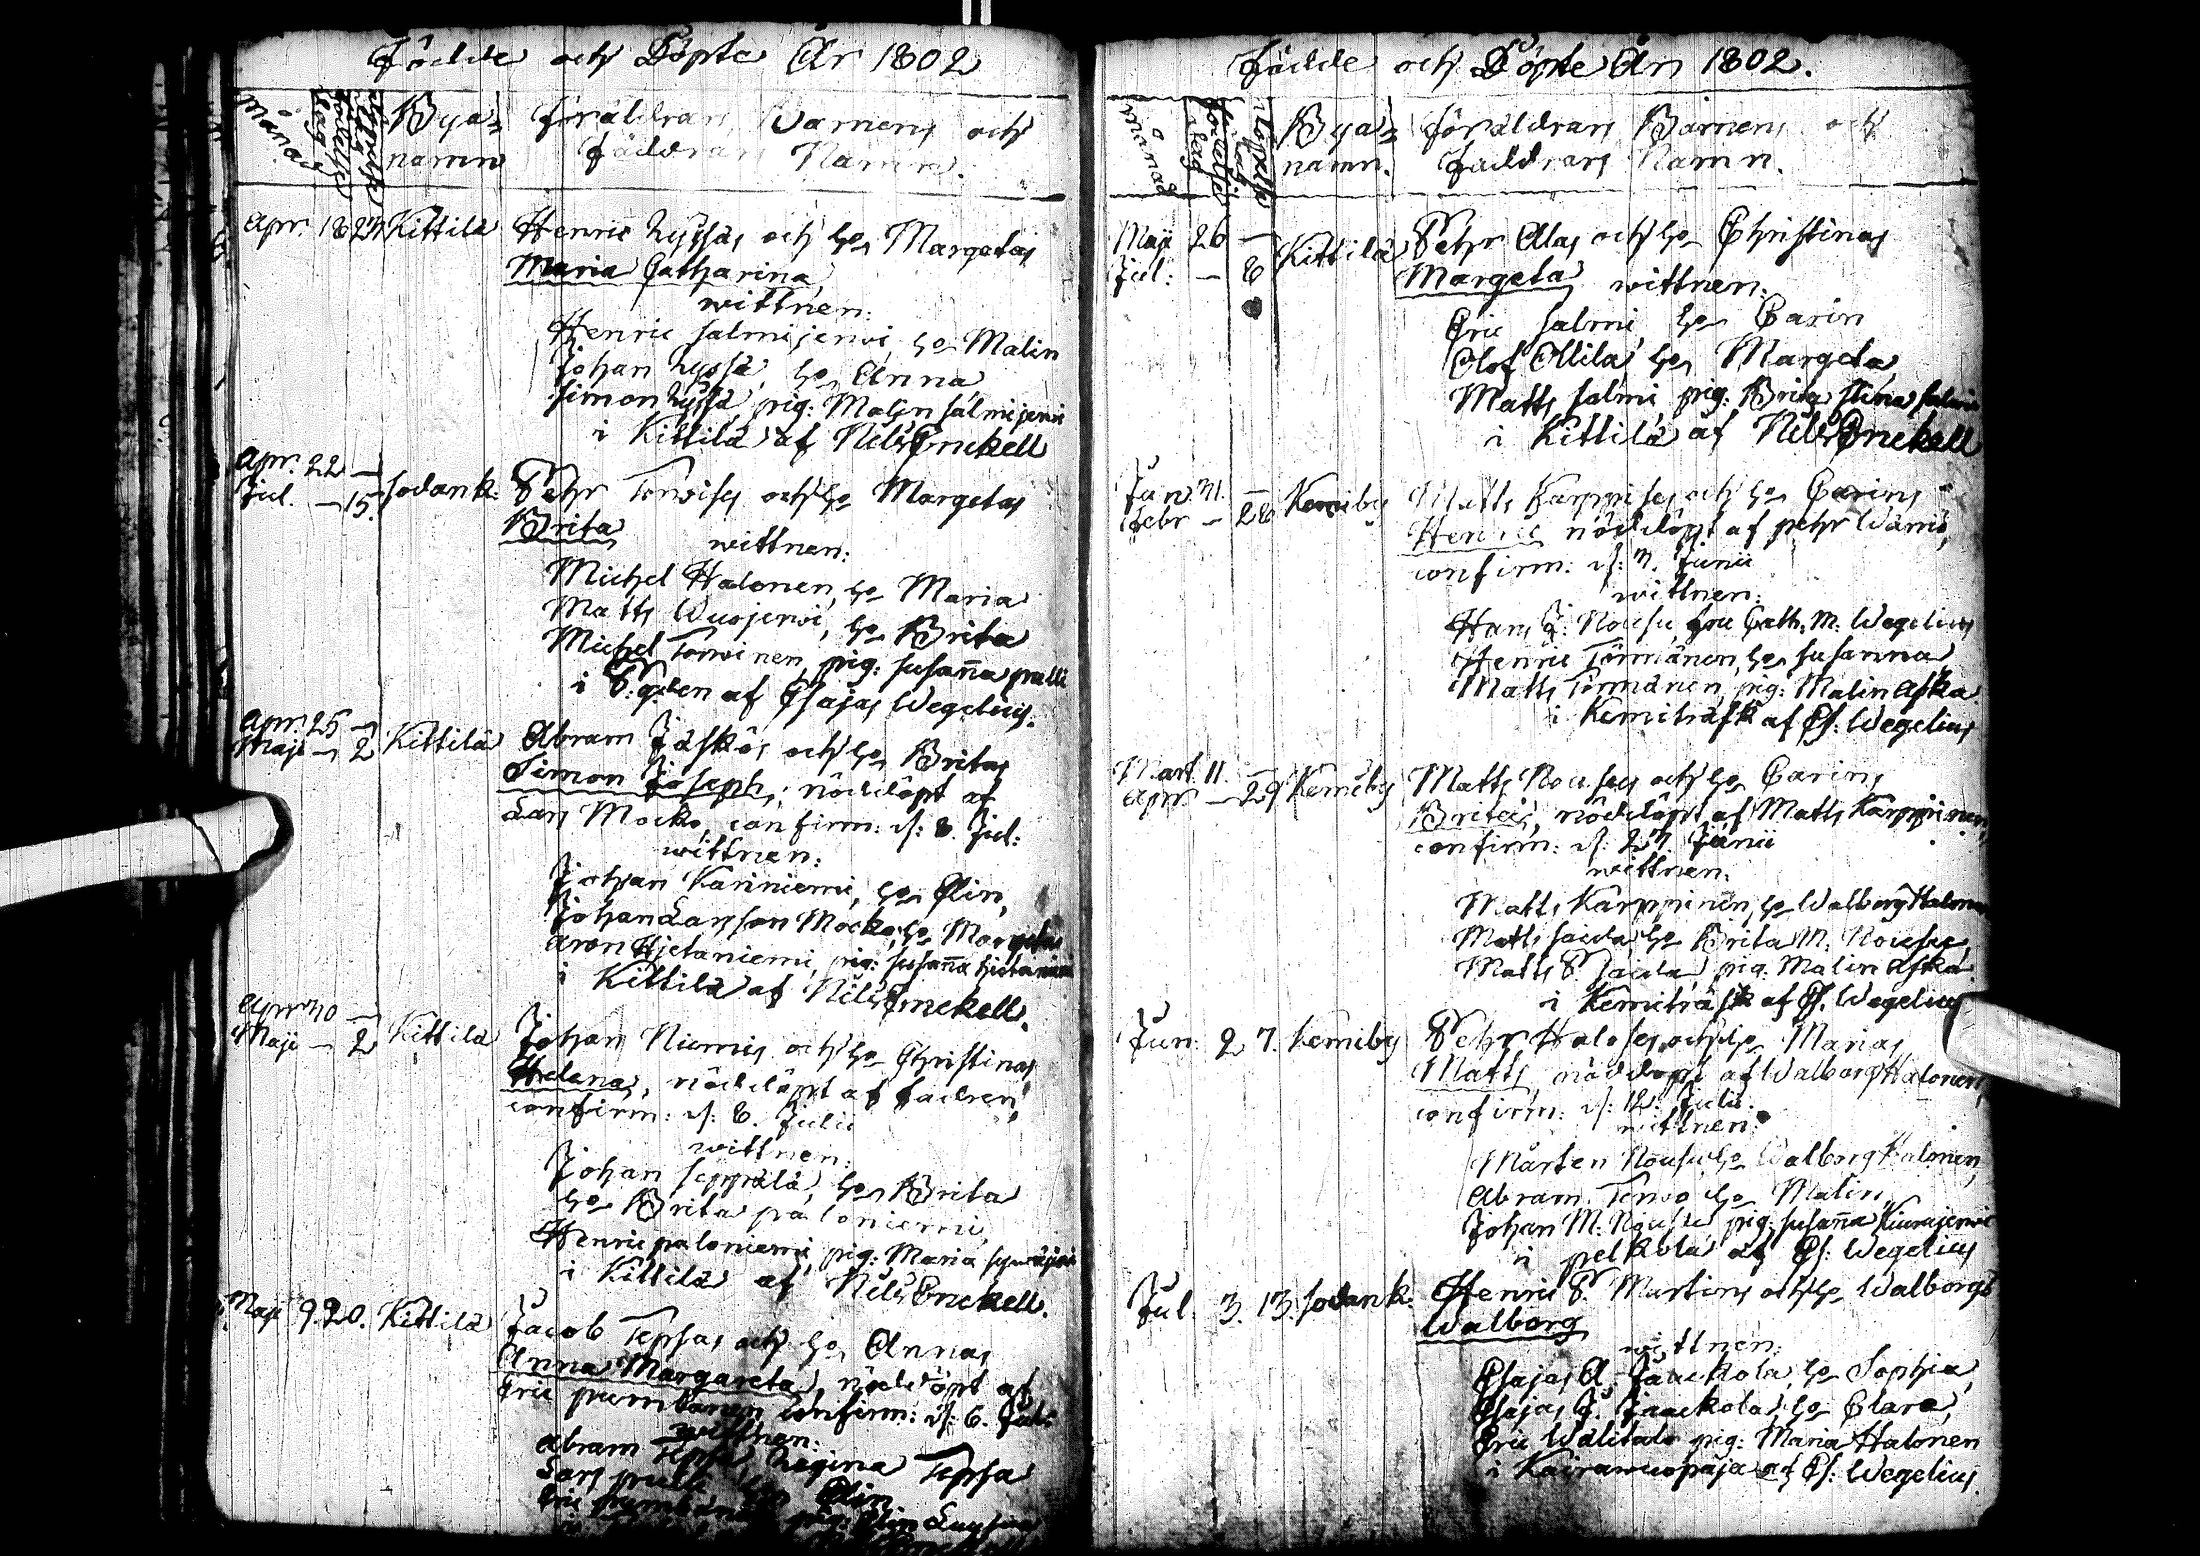 Födde och Döpte År 1802
Månad
Bya= Föräldrars Barnens och
namn Faddrars Namn.
Apr. 18 23 Kittilä Henric Zyssäs och ho Margetas
Maria Catharina,
wittnen:
Henric Salmijerwi, ho Malin
Johan Zyssä, ho Anna
Simon Zyssä, pig: Malin Salmijerwi
i Kittilä af Nils Enckell
Apr. 22 —
Jul. — 15. Sodank. Pehr Torwises och ho Margetas
Brita
wittnen:
Michel Halonen, ho Maria
Matts Wuojerwi, ho Brita
Michel Torwinen, pig: Susanna pulli
i af Esajas Wegelius.
Apr. 25 —
Maji — 2 Kittilä Abram Jäskös och ho Britas
Simon Joseph, nöddöpt af
Lars Mocko, confirm: d: 8. Jul:
wittnen:
Johan Kariniemi, ho Elin,
Johan Larsson Mocko, ho Margeta
Aron Hietaniemi, pig: Susanna Hietaniemi
i Kittilä af Nils Enckell.
Apr 30 —
Maji — 2 Kittilä Johan Niemis och ho Christinas
Helena, nöddöpt af fadren,
confirm: d: 8. Julii
wittnen:
Johan Seppälä, ho Brita
ho Brita paloniemi,
Henric paloniemi, pig: Maria
i Kittilä af Nils Enckell.
Maji 9 20. Kittilä Jacob Tepsas och ho Annas
Anna Margareta, nöddöpt af
Eric confirm: d: 6. Juli
wittnen:
Abram Tepsa, Regina Tepsa
Lars ho Elin
Eric pig: Elin
Födde och Döpte År 1802.
Månad
Bya= Föräldrars Barnens och
namn. Faddrars Namn.
Maji 26 — Pehr Alas och ho Christinas
Jul: — 8 Kittilä Margeta wittnen:
Eric Salmi, ho Carin
Olof Ollila, ho Margeta
Matts Salmi, pig: Brita Stina Salmi
i Kittilä af Nils Enckell
Jan. 31. —
Febr — 28 Kemiby Matts Karppises och ho Carins
Henric nöddöpt af pehr Wänio,
confirm: d: 7. Junii
wittnen:
Hans J. Nousu, fru Cath: M. Wegelius
Henric Törmänen, ho Susanna
Matts Törmänen, pig: Malin Aska
i Kemiträsk af Es. Wegelius
Mart. 11. —
Apr — 29 Kemiby Matts Nouses och ho Carins
Brita, nöddöpt af Matts Kärppinen,
confirm: d: 27. Junii
wittnen:
Matts Kärppinen, ho Walborg Halonen
Matts Saida, ho Brita M. Nousu,
Matts P. Saida, pig. Malin Aska
i Kemiträsk af Es. Wegelius
Jun. 2 7. Kemiby Pehr Haloses och ho Marias
Matts, nöddöpt af Walborg Halonen,
confirm: d: 12. Julii
wittnen:
Mårten Nousu, ho Walborg Halonen,
Abram Terwo ho Malin,
Johan M. Nousu pig: Susanna Kiurujerwi
i pelkola af Es. Wegelius
Jul. 3. 13. Sodank. Henric P. Martins och ho Walborgs
Walborg
wittnen:
Esajas A. Jaackola, ho Sophia,
Esajas J. Jaackola, ho Clara,
Eric Wälitalo pig: Maria Halonen
i Kairawuopaja af Es. Wegelius.